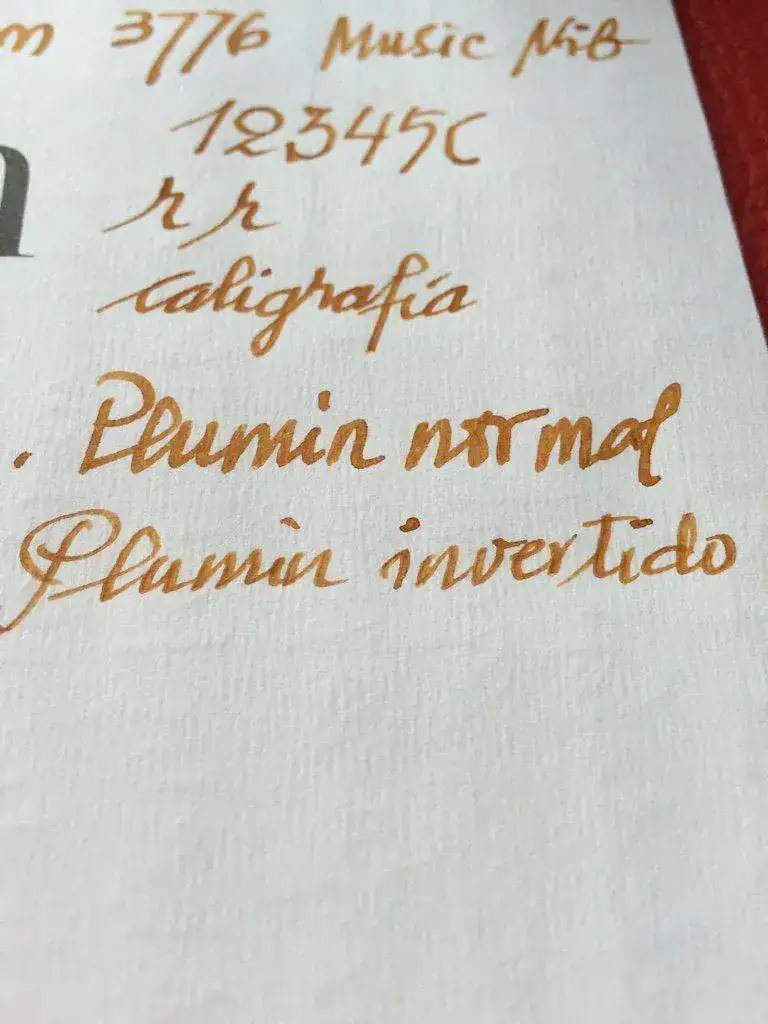 3776 Music Nib
12345
r r
caligrafía
. Plumin normal
Plumin invertido